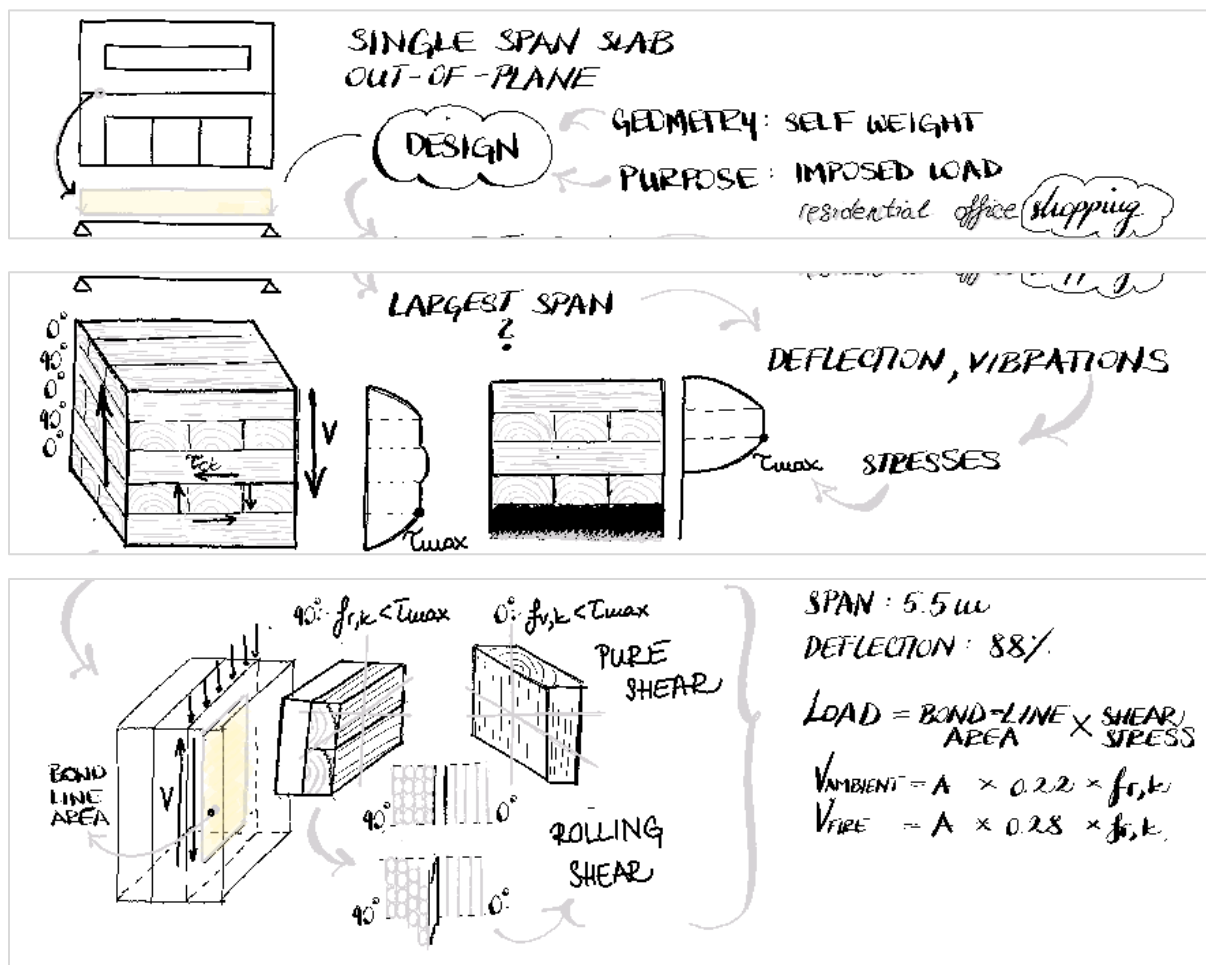 SINGLE SPAN SLAB
OUT-OF-PLANE
DESIGN
GEOMETRY: SELF WEIGHT
PURPOSE: IMPOSED LOAD
residential office shopping
LARGEST SPAN
?
DEFLECTION, VIBRATIONS
0°
90°
0°
90°
0°
V
τmax
τmax
STRESSES
90°: fr,k < τmax
0°: fv,k < τmax
PURE
SHEAR
BOND
LINE
AREA
V
90°
0°
90°
0°
ROLLING
SHEAR
SPAN: 5.5m
DEFLECTION: 88%
LOAD = BOND-LINE AREA × SHEAR STRESS
VAMBIENT = A × 0.22 × fr,k
VFIRE = A × 0.28 × fr,k